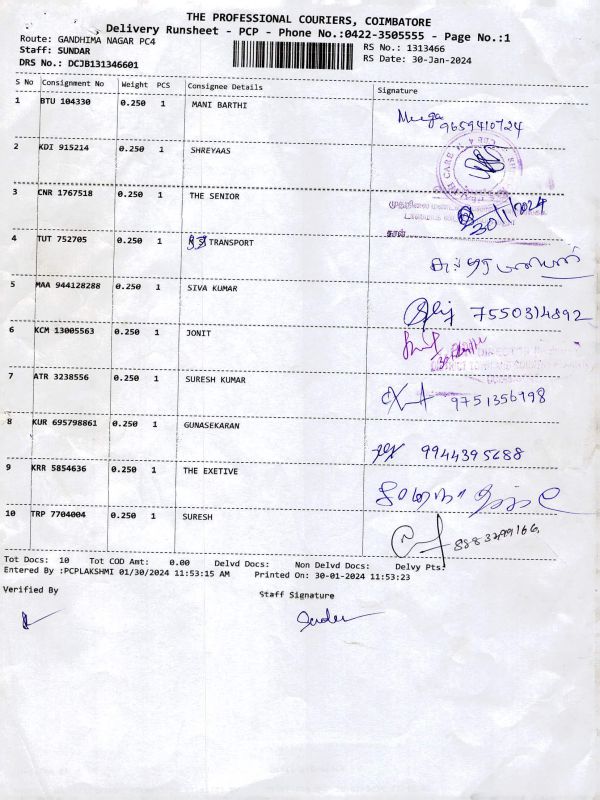 THE PROFESSIONAL COURIERS, COIMBATORE
Delivery Runsheet - PCP - Phone No.:0422-3505555 - Page No.:1
Route: GANDHIMA NAGAR PC4 RS No.: 1313466
Staff: SUNDAR RS Date: 30-Jan-2024
DRS No.: DCJB131346601
S No Consignment No Weight PCS Consignee Details Signature
1 BTU 104330 0.250 1 MANI BARTHI 9659410724
2 KDI 915214 0.250 1 SHREYAAS
3 CNR 1767518 0.250 1 THE SENIOR 30/1/2024
4 TUT 752705 0.250 1 TRANSPORT
5 MAA 944128288 0.250 1 SIVA KUMAR 7550314892
6 KCM 13005563 0.250 1 JONIT
7 ATR 3238556 0.250 1 SURESH KUMAR 9751356798
8 KUR 695798861 0.250 1 GUNASEKARAN 9944395688
9 KRR 5854636 0.250 1 THE EXETIVE
10 TRP 7704004 0.250 1 SURESH
Tot Docs: 10 Tot COD Amt: 0.00 Delvd Docs: Non Delvd Docs: Delvy Pts:
Entered By :PCPLAKSHMI 01/30/2024 11:53:15 AM Printed On: 30-01-2024 11:53:23
Verified By Staff Signature